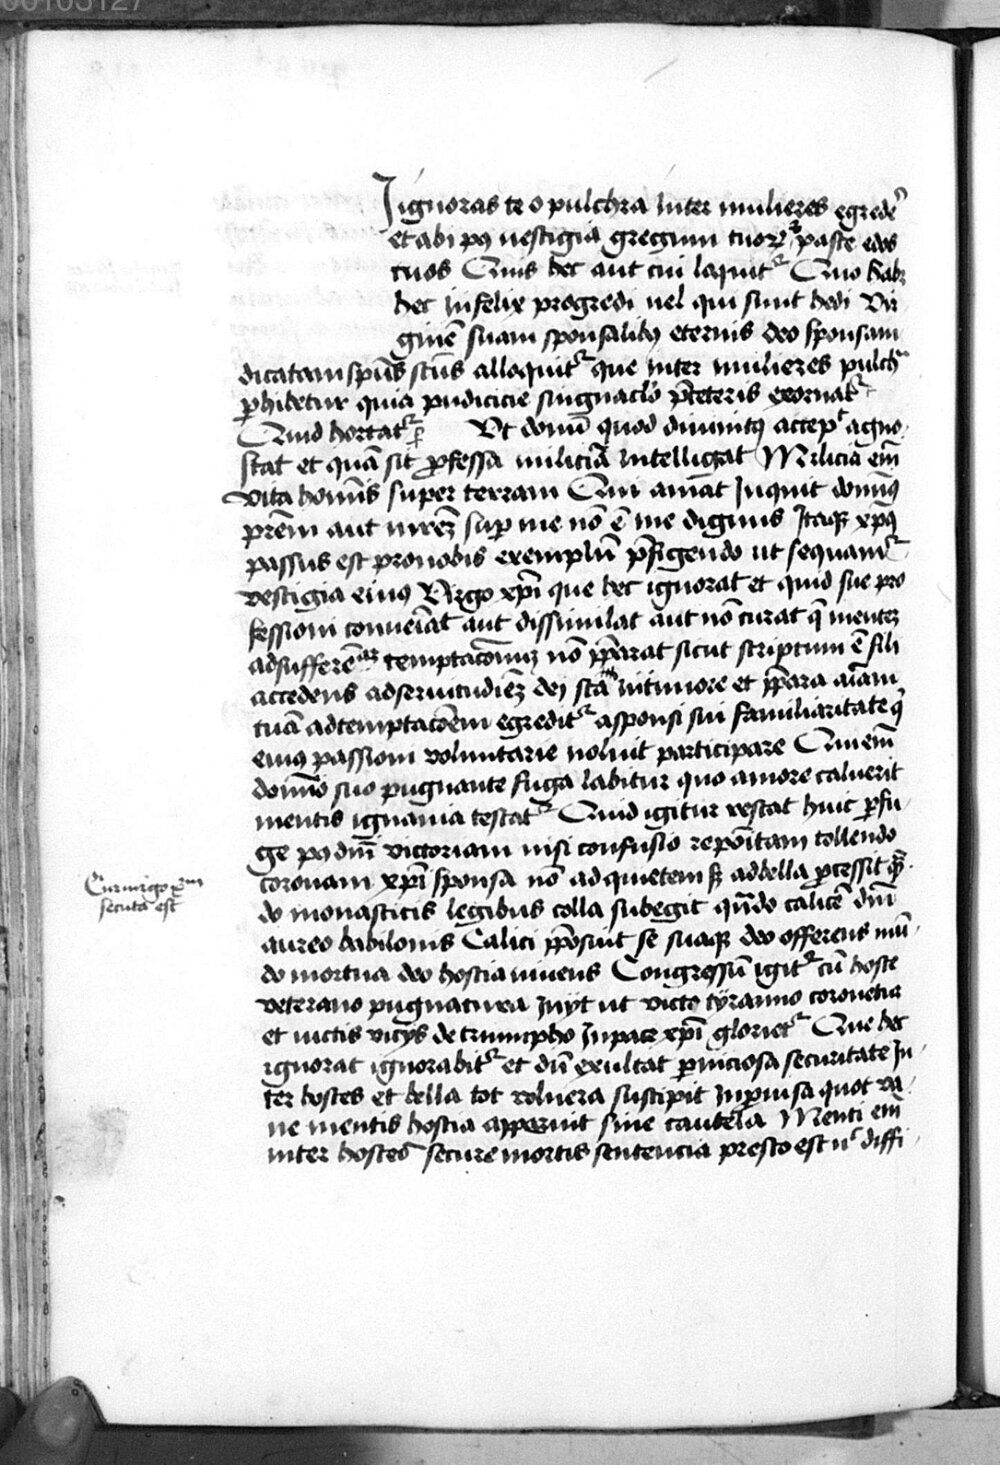 00103127
Ignoras te o pulchra inter mulieres egrede͛
et abi pꝰ uestigia gregum tuoꝝ ⁊ paste edos
tuos Quis hec aut cui loquitᷣ Quo habꝫ
hec infelix progredi uel qui sunt hedi Vir
ginē suam sponsalibꝰ eternis deo sponsam
dicatam spūs scūs alloquitᷣ que inter mulieres pulch͛
ꝑhibetur quia pudicicie p̄ceteris exornatᷣ
Quid hortatᷣ Vt donū quod diuinitꝰ accep͛ agno
scat et quā sit ꝓfessa miliciā intelligat Milicia em̄
vita homīs super terram Qui amat Inquit domīꝰ
prēm aut mrēꝫ suꝑ me nō ē me dignus Itaqꝫ xp̄ꝰ
passus est pronobis exemplū p̄figendo ut sequamᷣ
vestigia eiuꝰ Virgo xp̄i que hec ignorat et quid sue pro
fessioni conueīat aut dissimilat aut nō curat menteꝫ
ad temptacōnuꝫ nō p̄parat sicut scriptum ē fili
accedens adseruitudiēꝫ dei sta intimore et p̄para aīam
tuā adtemptacōem egreditᷣ asponsi sui familiaritate qͥ
eiuꝰ passioni voluntarie noluit participare Quem̄
domīo suo pugnante fuga labitur quo amore caluerit
mentis ignauia testatᷣ Quid igitur restat huic ꝑfu
ge pꝰ dn̄i victoriam nisi confusio repoītam tollendo
coronam xp̄i sponsa nō adquietem sꝫ adbella ꝓcessit
do monasticis legibus colla subegit qn̄do calicē dn̄i
aureo babilonis Calici p̄posuit se suaqꝫ deo offerens mū
do mortua deo hostia uiuens Congressū igitᷣ cū hoste
veterano pugnatura Inijt ut victo tÿranno coronetur
et uictis vicijs detriumpho Inpace xp̄i glorietᷣ Que hec
ignorat ignorabitᷣ et dū exultat ꝑniciosa securitate In
ter hostes et bella tot volnera suscipit Inprouisa quot va
ne mentis hostia apperuit sine cautela Menti em̄
inter hostes secure mortis sentencia presto est diffi
Cur uirgo xp̄m
secuta est